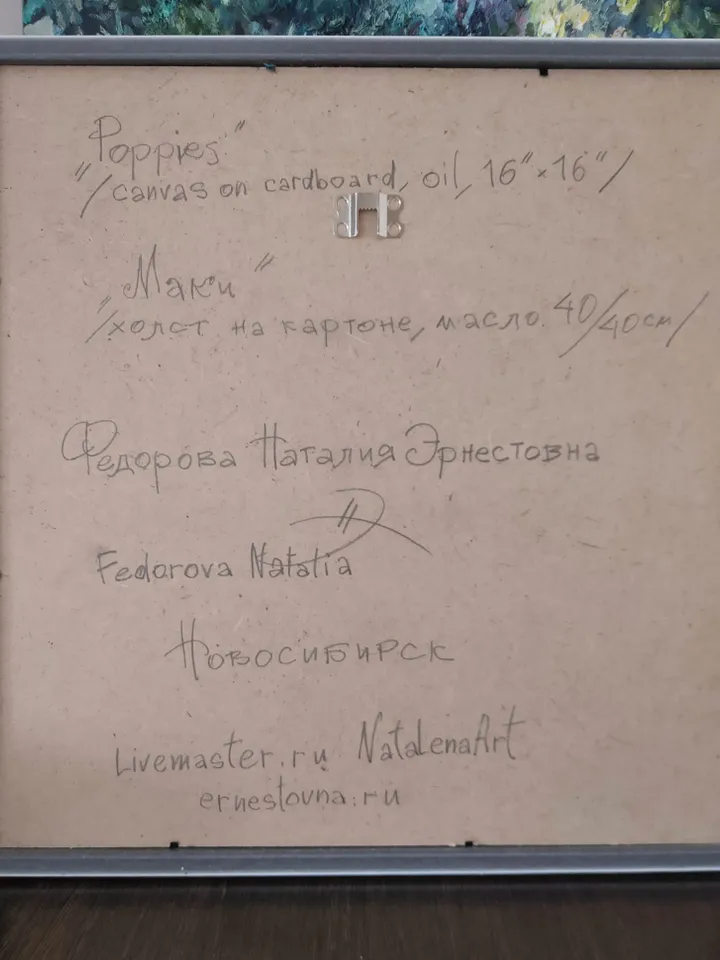 „Poppies"
/canvas on cardboard, oil, 16"×16"/
„Маки"
/холст на картоне, масло. 40/40см/
Федорова Наталия Эрнестовна
Fedorova Natalia
Новосибирск
Livemaster.ru NatalenaArt
ernestovna.ru